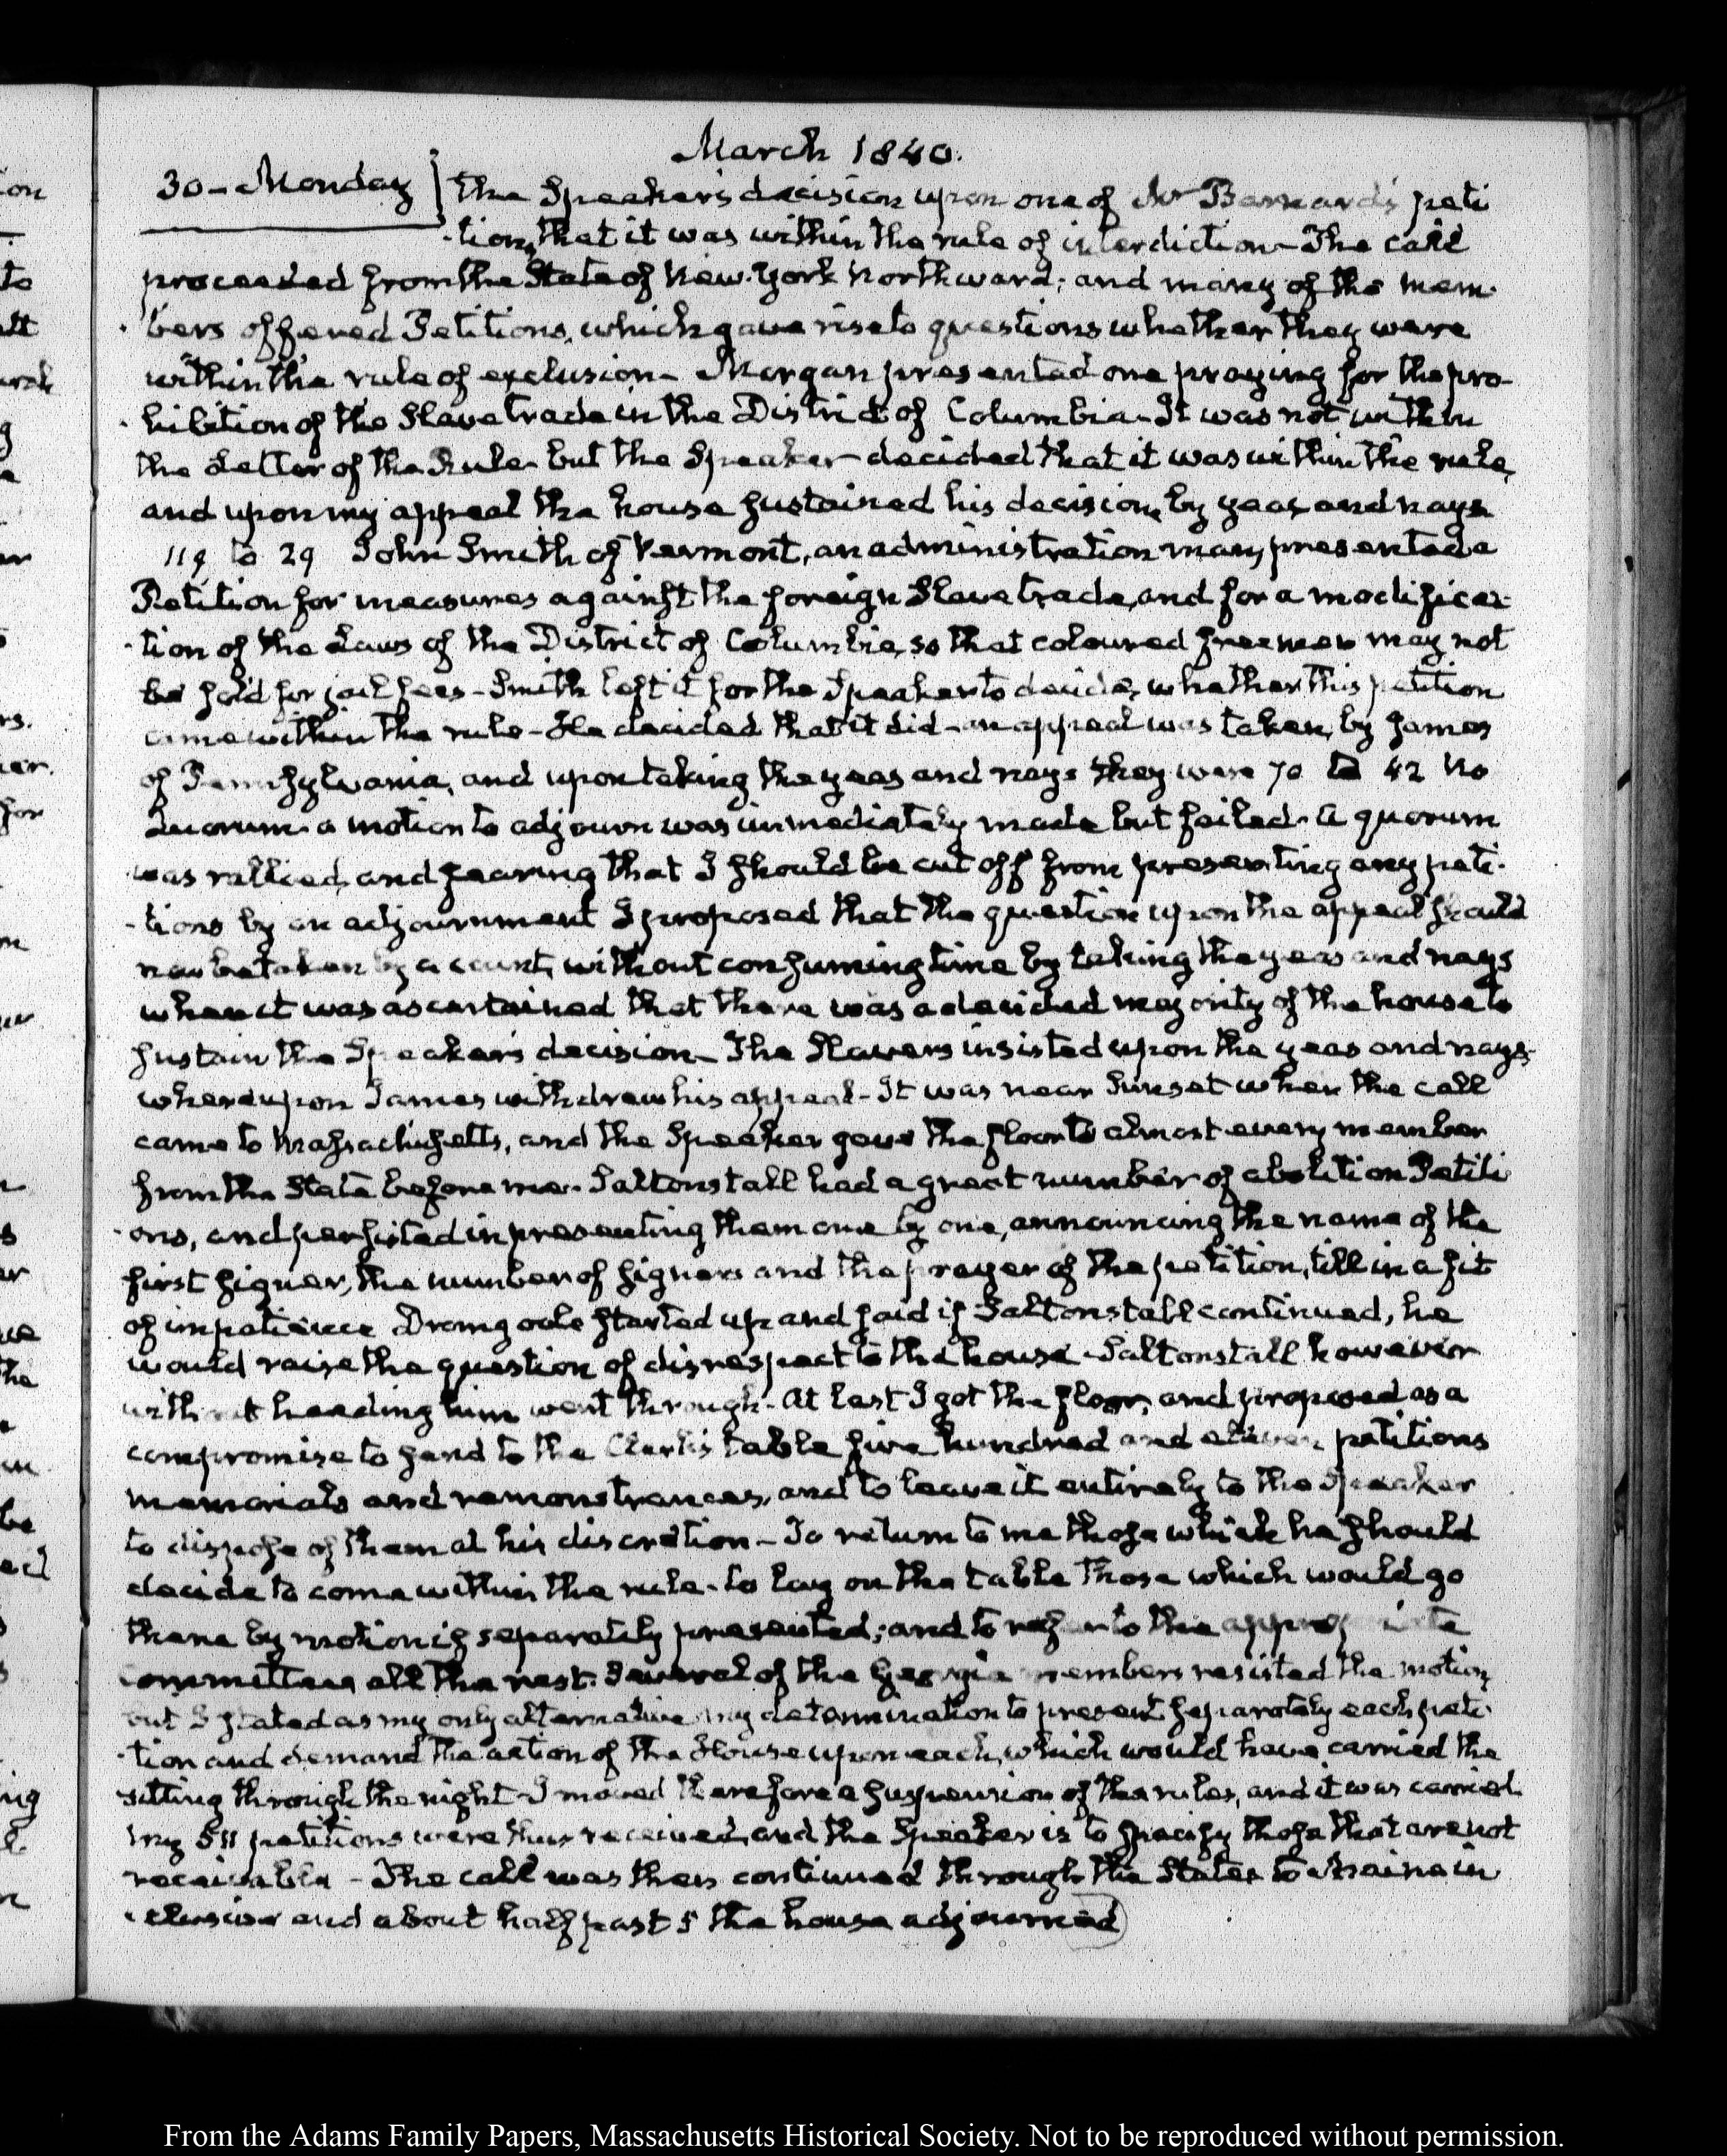 March 1840.
30 - Monday} the Speaker's decision upon one of Mr Barnard's peti
-tions, that it was within the rule of interdiction - The call
proceeded from the State of New-York Northward; and many of the mem-
-bers offered Petitions, which gave rise to questions whether they were
within the rule of exclusion - Morgan presented one praying for the pro-
-hibition of the Slave trade in the District of Columbia - It was not within
the Letter of the Rule - but the Speaker decided that it was within the rule,
and upon my appeal the house sustained his decision, by yeas and nays
119 to 29 John Smith of Vermont, an administration man, presented a
Petition for measures against the foreign Slave trade, and for a modifica-
-tion of the Laws of the District of Columbia, so that coloured freemen may not
be sold for jail fees - Smith left it for the Speaker to decide, whether this petition
came within the rule - He decided that it did - an appeal was taken, by James
of Pennsylvania, and upon taking the yeas and nays they were 70 to 42 No
Quorum - a motion to adjourn was immediately made but failed - a quorum
was rallied, and fearing that I should be cut off from presenting any peti-
-tions by an adjournment I proposed that the question upon the appeal should
now be taken by a count, without consuming time by taking the yeas and nays
when it was ascertained that there was a decided majority of the house to
sustain the Speaker's decision - The Slavers insisted upon the yeas and nays-
whereupon James withdrew his appeal - It was near Sunset when the call
came to Massachusetts, and the Speaker gave the floor to almost every member
from the State before me - Saltonstall had a great number of abolition Petiti
-ons, and persisted in presenting them one by one, announcing the name of the
first signer, the number of signers and the prayer of the petition, till in a fit
of impatience Dromgoole started up and said if Saltonstall continued, he
would raise the question of disrespect to the house - Saltonstall however
without heeding him went through - At last I got the floor, and proposed as a
compromise to send to the Clerk's table five hundred and eleven petitions
memorials and remonstrances, and to leave it entirely to the Speaker
to dispose of them at his discretion - To return to me those which he should
decide to come within the rule - to lay on the table those which would go
there by motion if separately presented; and to refer to the appropriate
Committees all the rest. Several of the Georgia members resisted the motion,
but I stated as my only alternative my determination to present separately each peti
-tion and demand the action of the House upon each, which would have carried the
sitting through the night - I moved therefore a suspension of the rules, and it was carried
my 511 petitions were thus received, and the Speaker is to specify those that are not
receivable - The call was then continued through the States to Maine in
clusive and about half past 5 the house adjourned
From the Adams Family Papers, Massachusetts Historical Society. Not to be reproduced without permission.